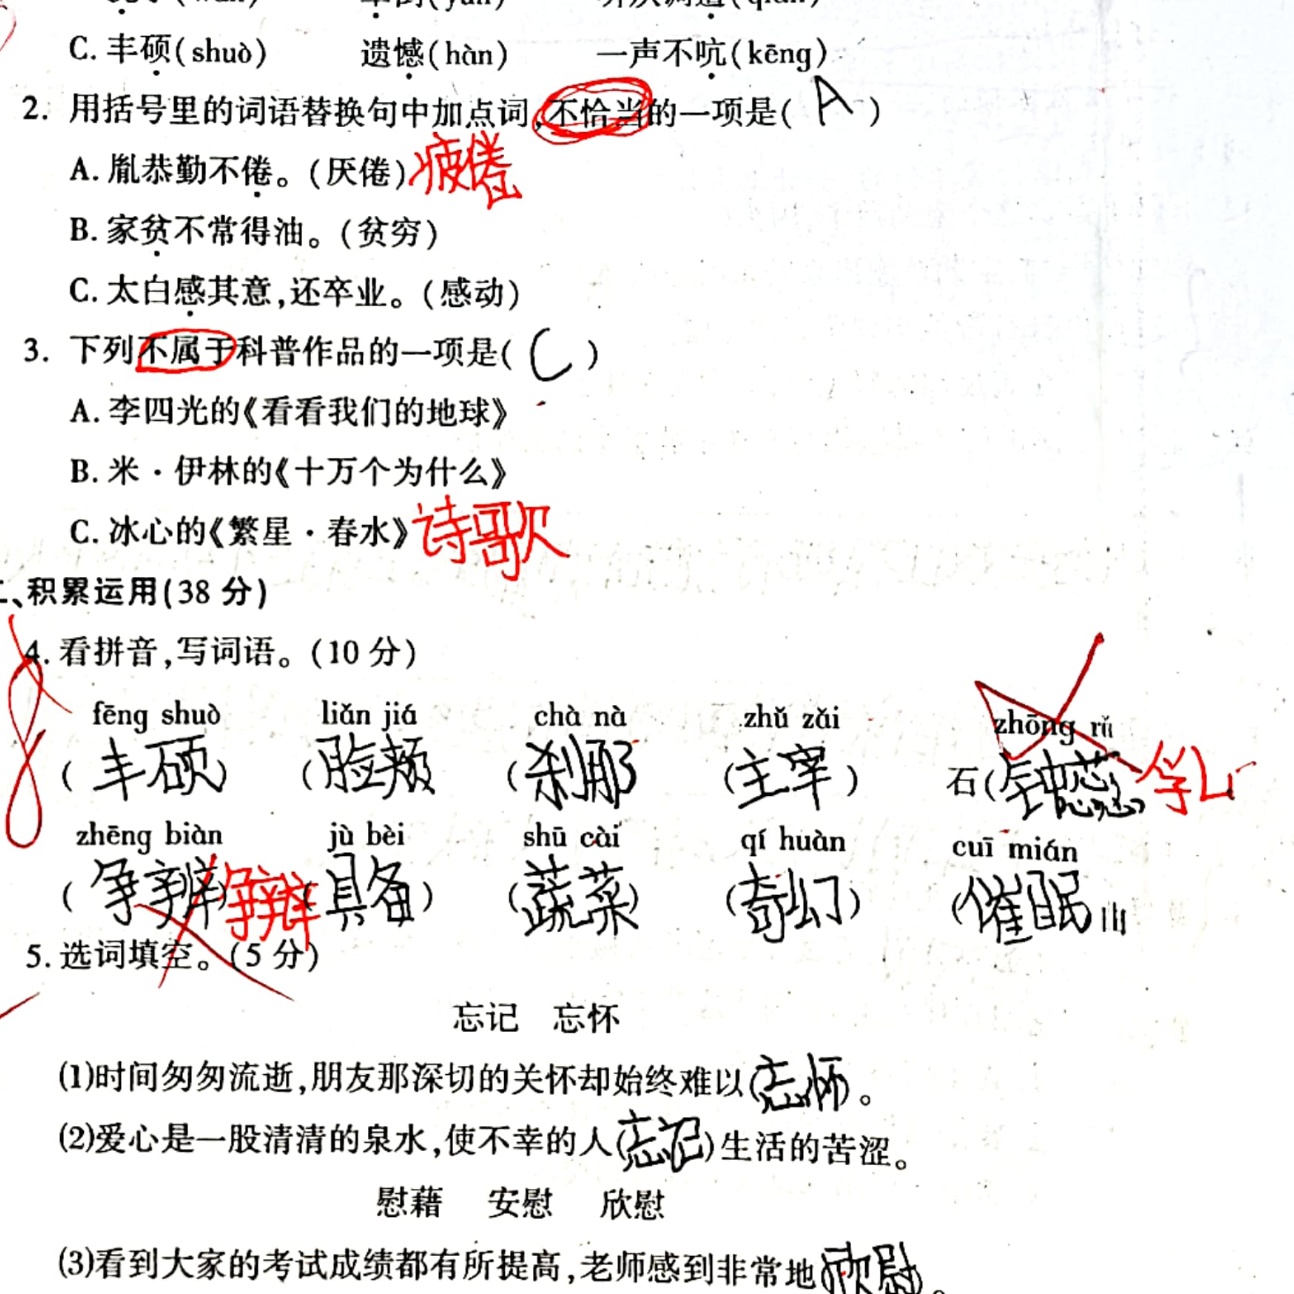 C. 丰硕(shuò) 遗憾(hàn) 一声不吭(kēng)
2. 用括号里的词语替换句中加点词,不恰当的一项是( A )
A. 胤恭勤不倦。(厌倦) 疲倦
B. 家贫不常得油。(贫穷)
C. 太白感其意,还卒业。(感动)
3. 下列不属于科普作品的一项是( C )
A. 李四光的《看看我们的地球》
B. 米·伊林的《十万个为什么》
C. 冰心的《繁星·春水》 诗歌
二、积累运用(38分)
4. 看拼音,写词语。(10分)
8
fēng shuò liǎn jiá chà nà zhǔ zǎi zhōng rǔ
(丰硕) (脸颊) (刹那) (主宰) 石(钟 乳
zhēng biàn jù bèi shū cài qí huàn cuī mián
(争辨) 争辩 (具备) (蔬菜) (奇幻) (催眠
5. 选词填空。(5分)
忘记 忘怀
(1)时间匆匆流逝,朋友那深切的关怀却始终难以(忘怀)。
(2)爱心是一股清清的泉水,使不幸的人(忘记)生活的苦涩。
慰藉 安慰 欣慰
(3)看到大家的考试成绩都有所提高,老师感到非常地(欣慰)。